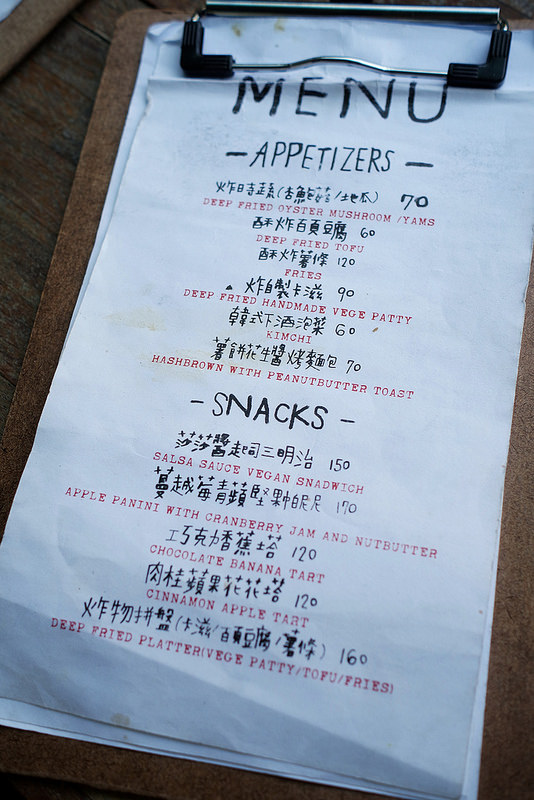 MENU
- APPETIZERS -
炸時蔬(杏鮑菇/地瓜) 70
DEEP FRIED OYSTER MUSHROOM /YAMS
酥炸百頁豆腐 60
DEEP FRIED TOFU
酥炸薯條 120
FRIES
▲ 炸自製卡滋 90
DEEP FRIED HANDMADE VEGE PATTY
韓式下酒泡菜 60
KIMCHI
薯餅花生醬烤麵包 70
HASHBROWN WITH PEANUTBUTTER TOAST
- SNACKS -
莎莎醬起司三明治 150
SALSA SAUCE VEGAN SNADWICH
蔓越莓青蘋堅果帕尼尼 170
APPLE PANINI WITH CRANBERRY JAM AND NUTBUTTER
巧克力香蕉塔 120
CHOCOLATE BANANA TART
肉桂蘋果花花塔 120
CINNAMON APPLE TART
炸物拼盤(卡滋/百頁豆腐/薯條) 160
DEEP FRIED PLATTER(VEGE PATTY/TOFU/FRIES)